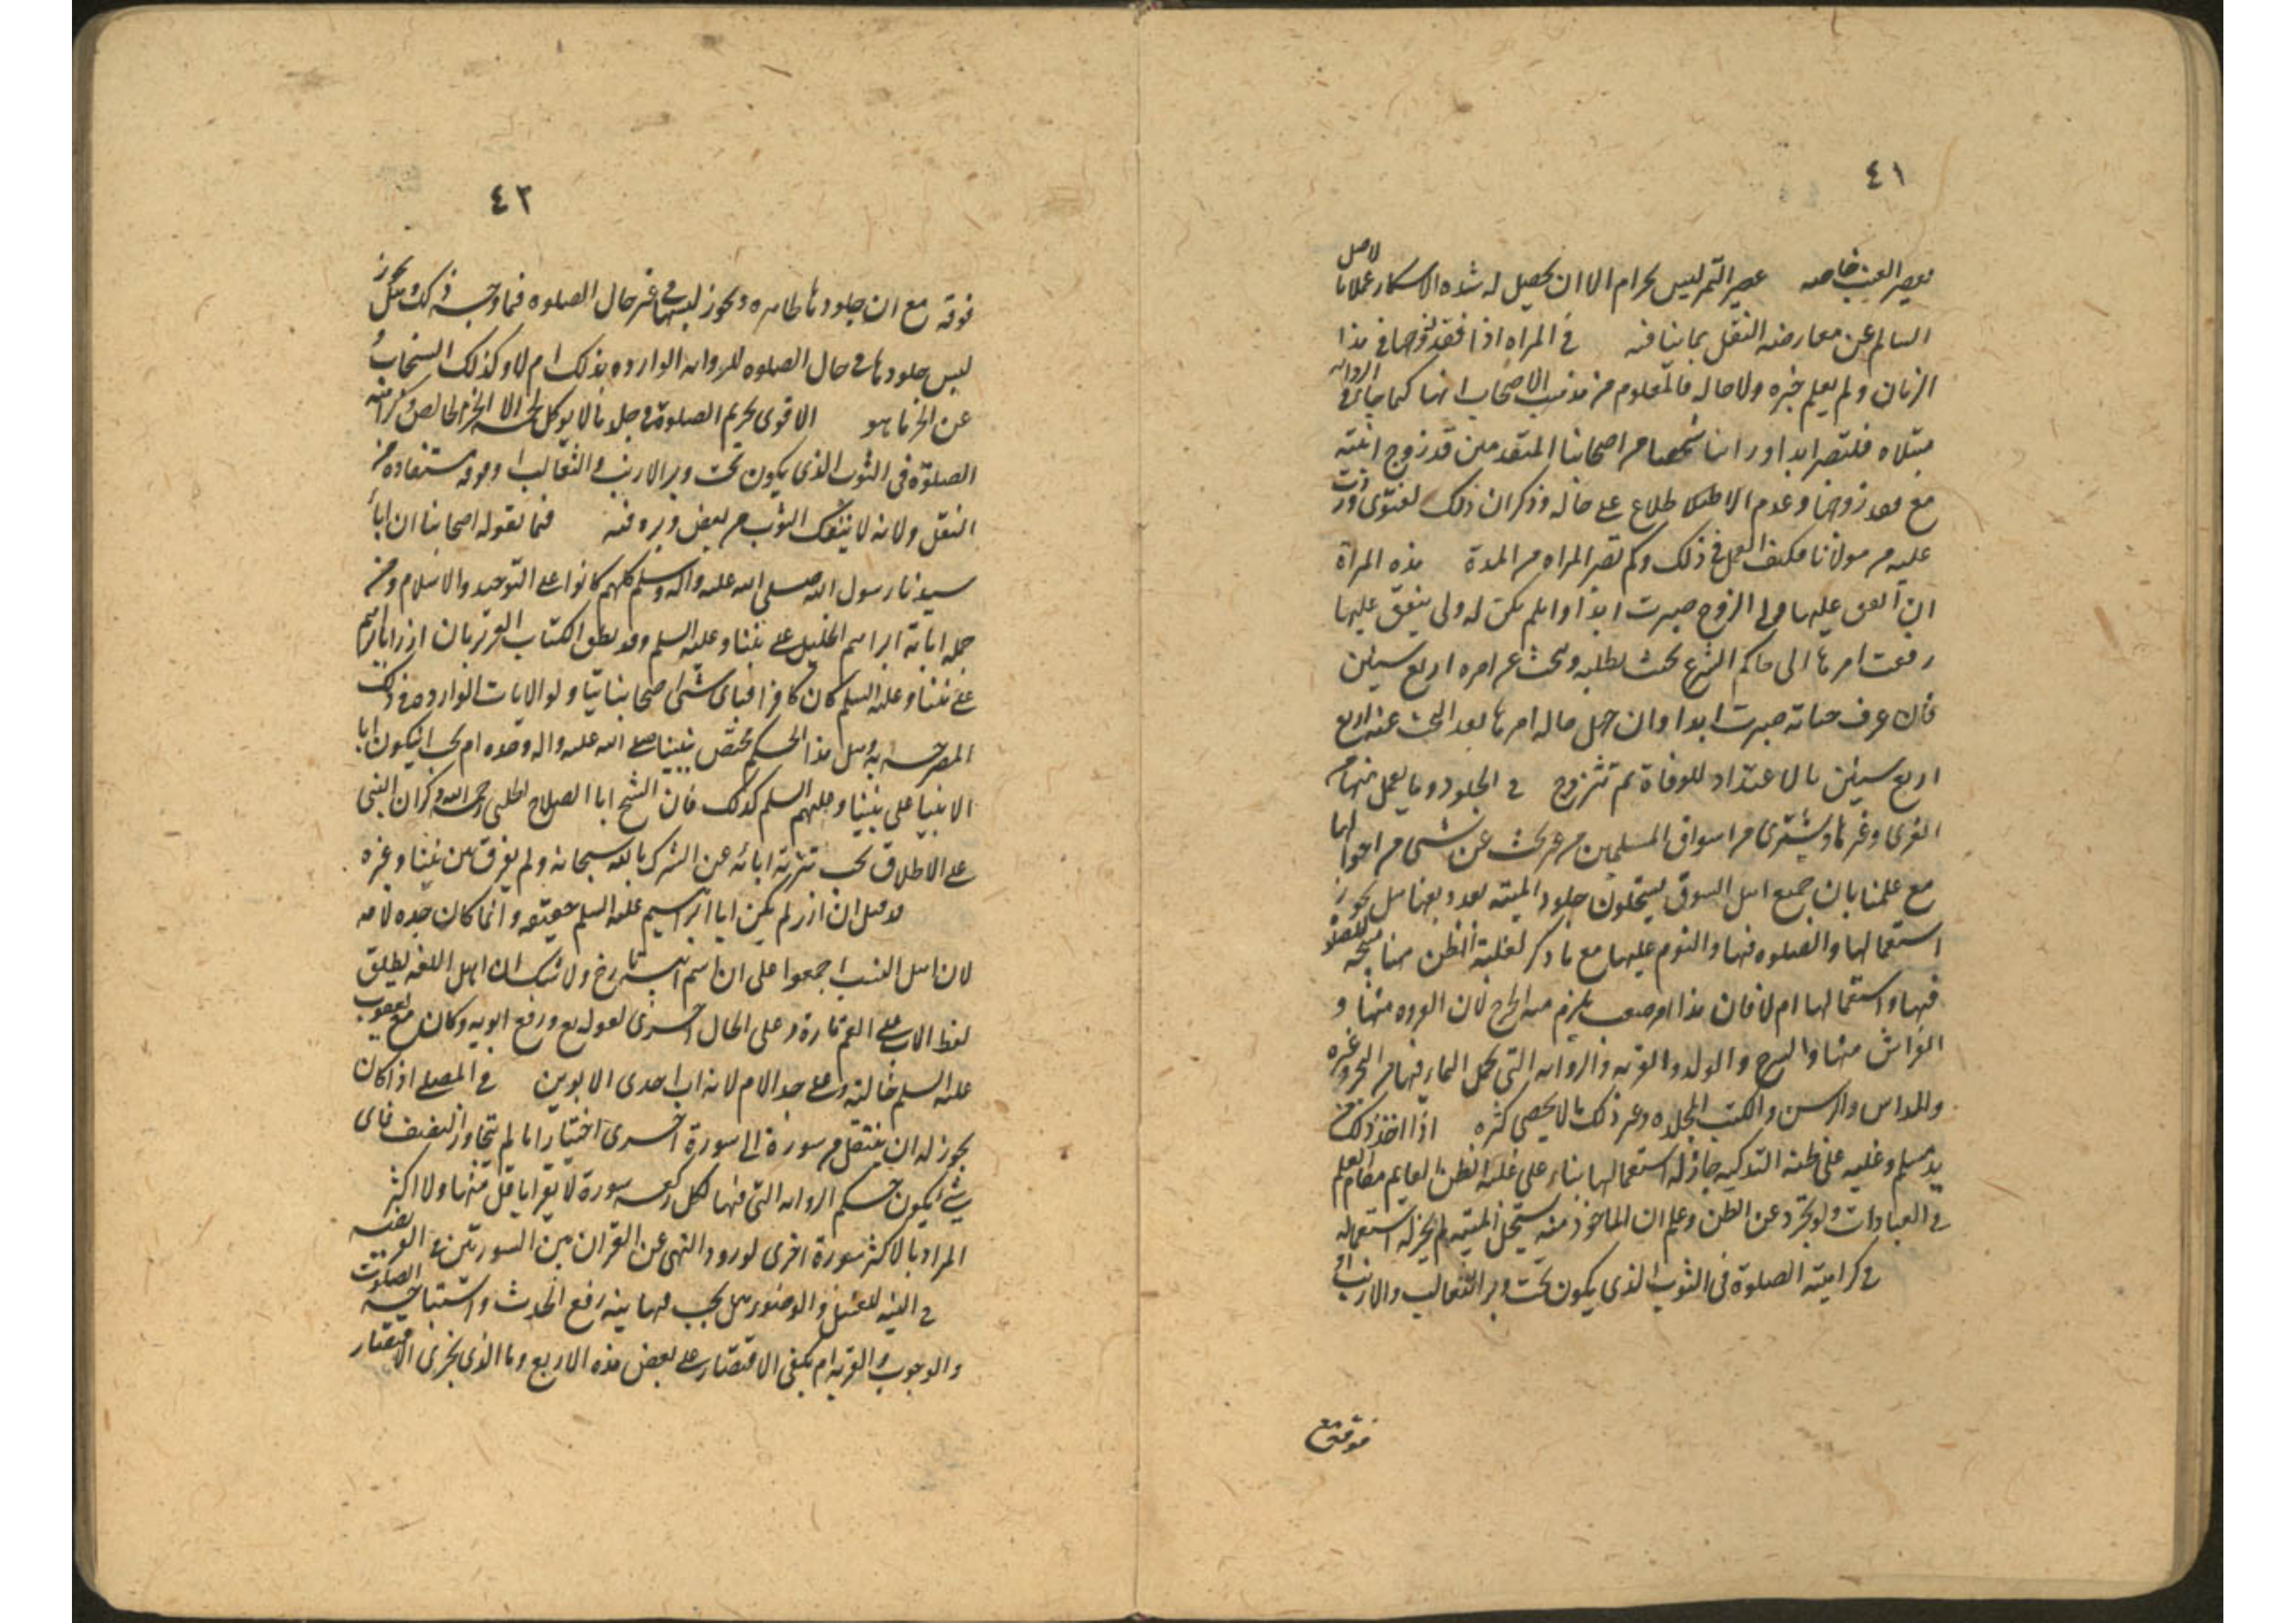 ٤١
بعصير العنب خاصه عصير التمر ليس بحرام الا ان يحصل له شدة الاسكار عملا بالاصل
السالم عن معارضه النقل بما ينافيه في المراه اذا فقد زوجها في هذا
الزمان ولم يعلم خبره ولا حاله فالمعلوم من مذهب الاصحاب انها كما جاء في الروايه
مبتلاه فلتصبر ابدا وراينا شخصا من اصحابنا المتقدمين قد زوج ابنته
مع فقد زوجها وعدم الاطلاع على حاله وذكر ان ذلك لفتوى وردت
عليه من مولانا فكيف العمل في ذلك وكم تصبر المراه من المدة هذه المراة
ان انفق عليها ولى الزوج صبرت ابدا وان لم يكن له ولى ينفق عليها
رفعت امرها الى حاكم الشرع بحث بطلبه وبحث عن امره اربع سنين
فان عرف حياته صبرت ابدا وان جهل حاله امرها بعد البحث عنه اربع
اربع سنين بالاعتداد للوفاة ثم تتزوج في الجلود وما يعمل منها من
الفرى وغيرها ويشترى من اسواق المسلمين من غير بحث عن شىء من احوالها
مع علمنا بان جميع اهل السوق يستحلون جلود الميته بعد دبغها هل يجوز
استعمالها والصلوه فيها والنوم عليها مع ما ذكر لغلبة الظن هنا بصحة الصلوة
فيها واستعمالها ام لا فان هذا امر صعب يلزم منه الحرج لان الفروه منها و
الفراش منها والسرج والقربه والروايه التى يحمل الماء فيها من البحر وغيره
والمداس والرسن والكتب المجلده وغير ذلك ما لا يحصى كثره اذا اخذ ذلك من
يد مسلم وغلب على ظنه التذكيه جاز له استعمالها بناء على غلبة الظن القايم مقام العلم
في العبادات ولو تجرد عن الظن وعلم ان الماخوذ منه يستحل الميته لم يجز له استعماله
في كراهية الصلوة فى الثوب الذى يكون تحت وبر الثعالب والارانب او
فوقه مع
٤٢
فوقه مع ان جلودها طاهره ويجوز لبسها في غير حال الصلوه فما وجه ذلك وهل يجوز
لبس جلودها في حال الصلوه للروايه الوارده بذلك ام لا وكذلك السنجاب و
عن الخز ما هو الاقوى تحريم الصلوة في جلد ما لا يوكل لحمه الا الخز الخالص وكراهية
الصلوة فى الثوب الذى يكون تحت وبر الارانب والثعالب او فوقه مستفاده من
النقل ولانه لا ينفك الثوب من بعض وبره فيه فيما يقوله اصحابنا ان اباء
سيدنا رسول الله صلى الله عليه واله وسلم كلهم كانوا على التوحيد والاسلام ومن
جمله ابائه ابراهيم الخليل على نبينا وعليه السلم وقد نطق الكتاب العزيز بان ازر ابا ابراهيم
على نبينا وعليه السلم كان كافرا فباى شىء اصحابنا يتاولوا الايات الوارده في ذلك
المصرحه به وهل هذا الحكم يختص بنبينا صلى الله عليه واله وحده ام يجب ان يكون اباء
الانبيا على نبينا وعليهم السلم كذلك فان الشيخ ابا الصلاح الحلبى رحمه الله ذكر ان النبى
على الاطلاق يجب تنزيه ابائه عن الشرك بالله سبحانه ولم يفرق بين نبينا وغيره
قد قيل ان ازر لم يكن ابا ابراهيم عليه السلم حقيقه وانما كان جده لامه
لان اهل النسب اجمعوا على ان اسم ابيه تارخ ولا شك ان اهل اللغه يطلق
لفظ الاب على العم تارة وعلى الخال اخرى لقوله تع ورفع ابويه وكان مع يعقوب
عليه السلم خالته وعلى جد الام لانه اب احدى الابوين في المصلى اذا كان
يجوز له ان ينتقل من سورة الى سورة اخرى اختيارا ما لم يتجاوز النصف فاى
شىء يكون حكم الروايه التى فيها لكل ركعه سورة لا يقرا باقل منها ولا اكثر
المراد بالاكثر سورة اخرى لورود النهى عن القران بين السورتين في الفريضه
في النيه للغسل والوضوء هل يجب فيها نية رفع الحدث واستباحة الصلوة
والوجوب والقربه ام يكفى الاقتصار على بعض هذه الاربع وما الذى يجزى الاقتصار